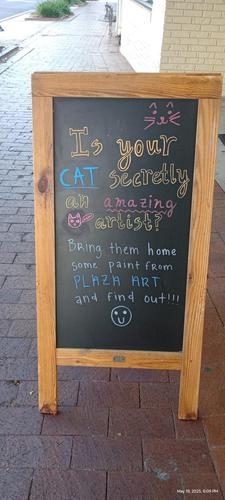 Is your
CAT secretly
an amazing
artist?
Bring them home
some paint from
PLAZA ART
and find out!!!
May 19, 2025, 6:04 PM